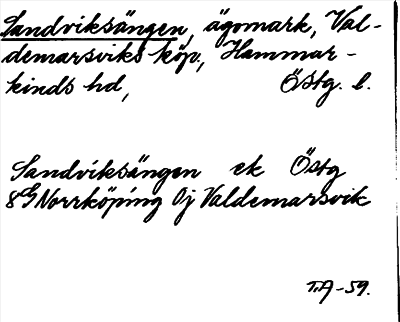 Sandviksängen, ägomark, Val-
demarsviks köp., Hammar-
kinds hd, Östg. l.
Sandviksängen ek Östg
8G Norrköping Oj Valdemarsvik
T.A-59.